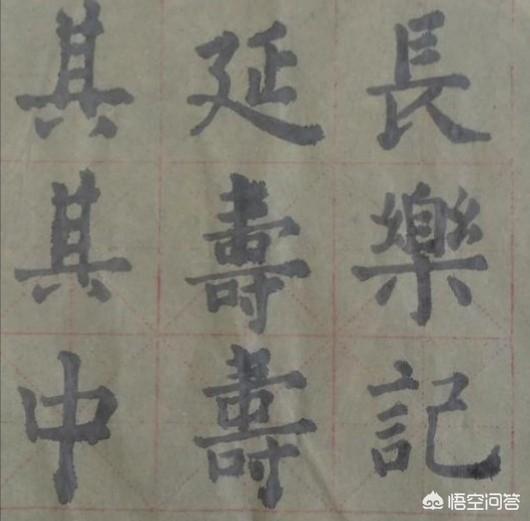 長樂記
延壽壽
其其中
悟空问答